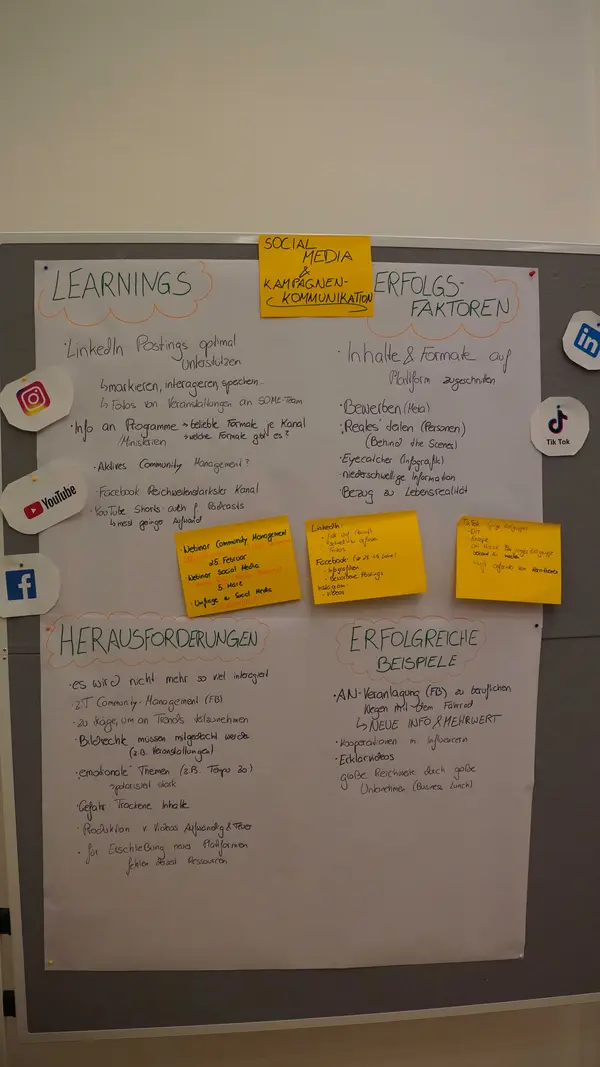 SOCIAL
MEDIA
&
KAMPAGNEN-
KOMMUNIKATION
LEARNINGS
• LinkedIn Postings optimal
unterstützen
↳ markieren, interagieren, speichern...
↳ Fotos von Veranstaltungen an SOME-Team
• Info an Programme → beliebte Formate je Kanal
/Ministerien → welche Formate gibt es?
• Aktives Community Management?
• Facebook Reichweitenstärkster Kanal
• YouTube Shorts auch f. Podcasts
↳ meist geringer Aufwand
ERFOLGS-
FAKTOREN
• Inhalte & Formate auf
Plattform zugeschnitten
• Bewerben (Meta)
• "Reales" teilen (Personen)
(Behind the Scenes)
• Eyecatcher (Infografik)
• niederschwellige Information
• Bezug zu Lebensrealität
Instagram
YouTube
f
in
TikTok
• Webinar Community Management
25. Februar
• Webinar Social Media
5. März
• Umfrage zu Social Media
LinkedIn
Fotos
Facebook
• Infografiken
• Postings
Instagram
• Videos
HERAUSFORDERUNGEN
• es wird nicht mehr so viel interagiert
• zT Community-Management (FB)
• zu träge, um an Trends teilzunehmen
• Bildrechte müssen mitgedacht werden
(z.B. Veranstaltungen)
• "emotionale" Themen (z.B. Tempo 30)
→ polarisiert stark
• Gefahr Trockene Inhalte
• Produktion v. Videos Aufwändig & Teuer
• für Erschließung neuer Plattformen
fehlen Ressourcen
ERFOLGREICHE
BEISPIELE
• AN-Veranlagung (FB) zu beruflichen
Wegen mit dem Fahrrad
↳ NEUE INFO & MEHRWERT
• Kooperationen m. Influencern
• Erklärvideos
große Reichweite durch große
Unternehmen (Business Lunch)